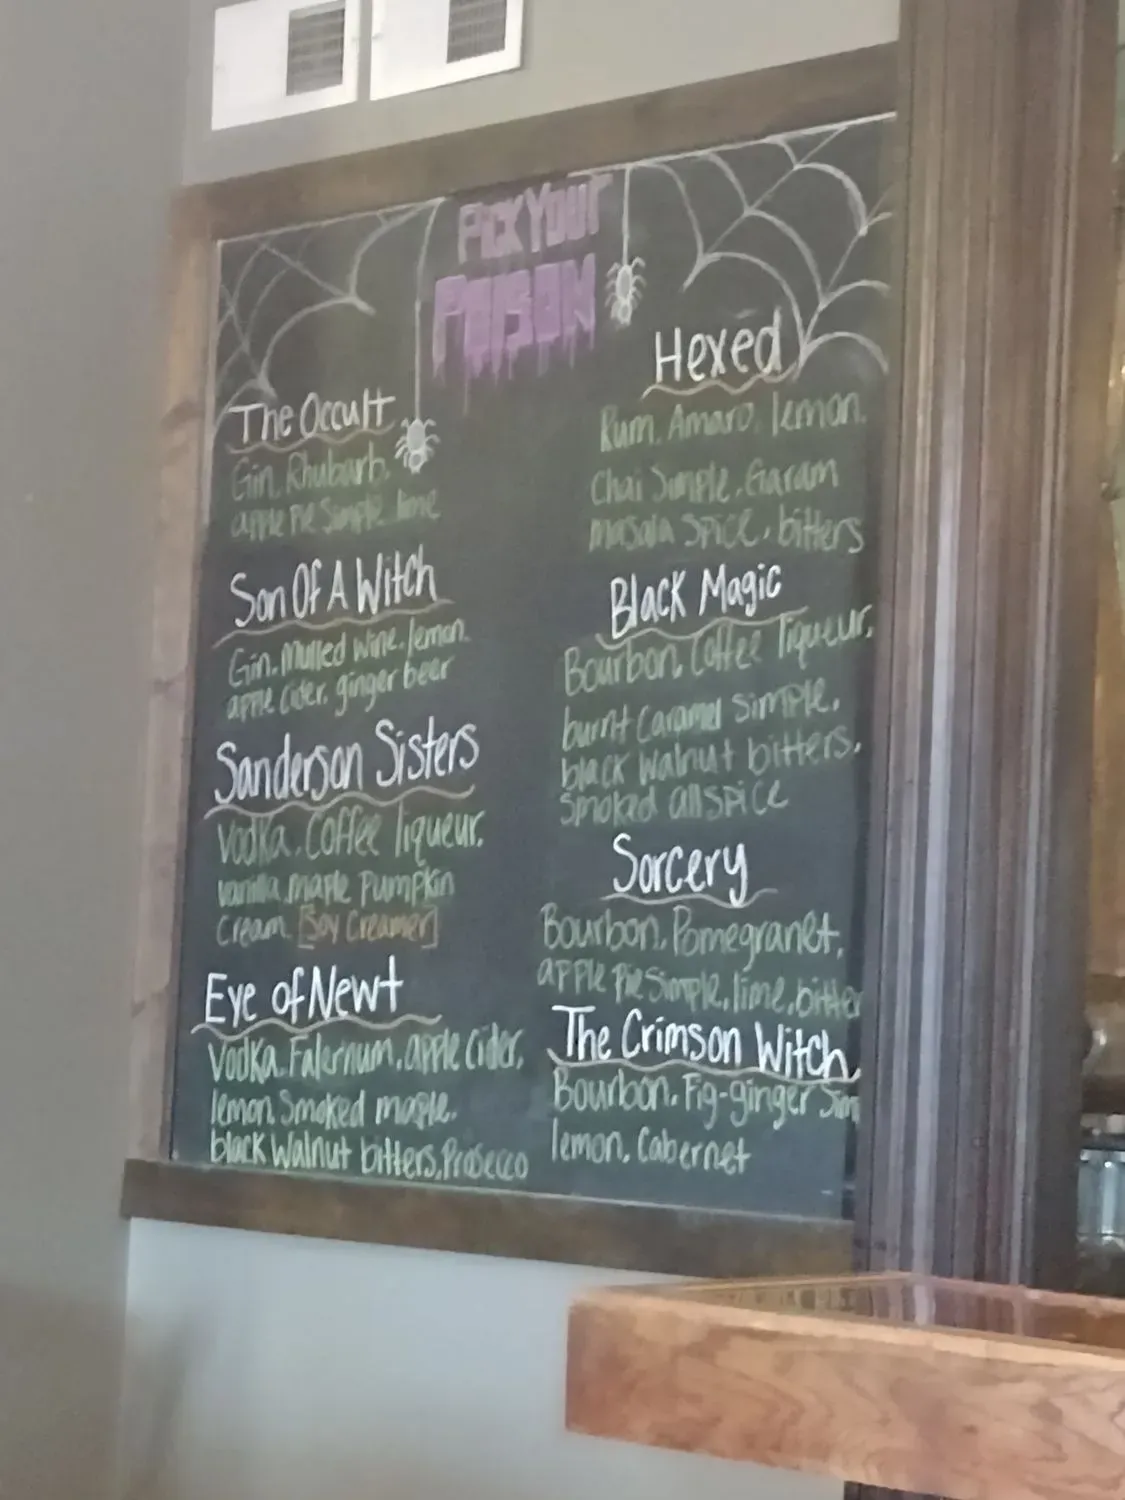 PICK YOUR
POISON
The Occult
Gin, Rhubarb,
apple Pie Simple, lime
Son Of A Witch
Gin, Mulled Wine, lemon,
apple cider, ginger beer
Sanderson Sisters
Vodka, Coffee liqueur,
vanilla, maple Pumpkin
Cream [Soy Creamer]
Eye of Newt
Vodka, Falernum, apple Cider,
lemon, Smoked maple,
black Walnut bitters, Prosecco
Hexed
Rum, Amaro, lemon,
Chai Simple, Garam
masala spice, bitters
Black Magic
Bourbon, Coffee liqueur,
burnt Caramel Simple,
black walnut bitters,
smoked allspice
Sorcery
Bourbon, Pomegranet,
apple Pie Simple, lime, bitter
The Crimson Witch
Bourbon, Fig-ginger Sim
lemon, Cabernet